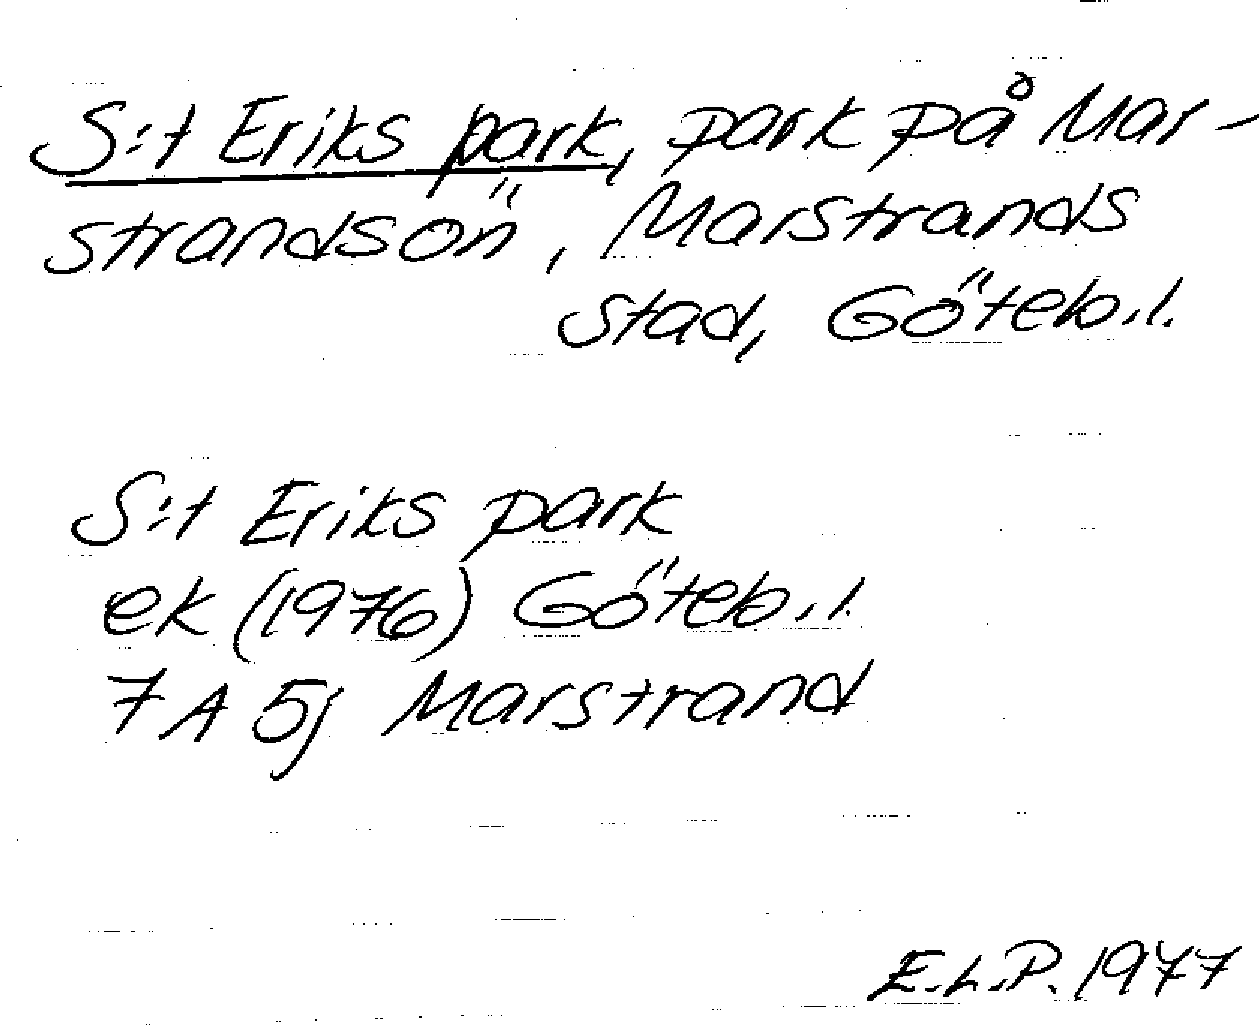 S:t Eriks park, park på Mar-
strandsön, Marstrands
stad, Göteb.l.
S:t Eriks park
ek (1976) Göteb.l.
7A 5j Marstrand
E.L.P. 1977